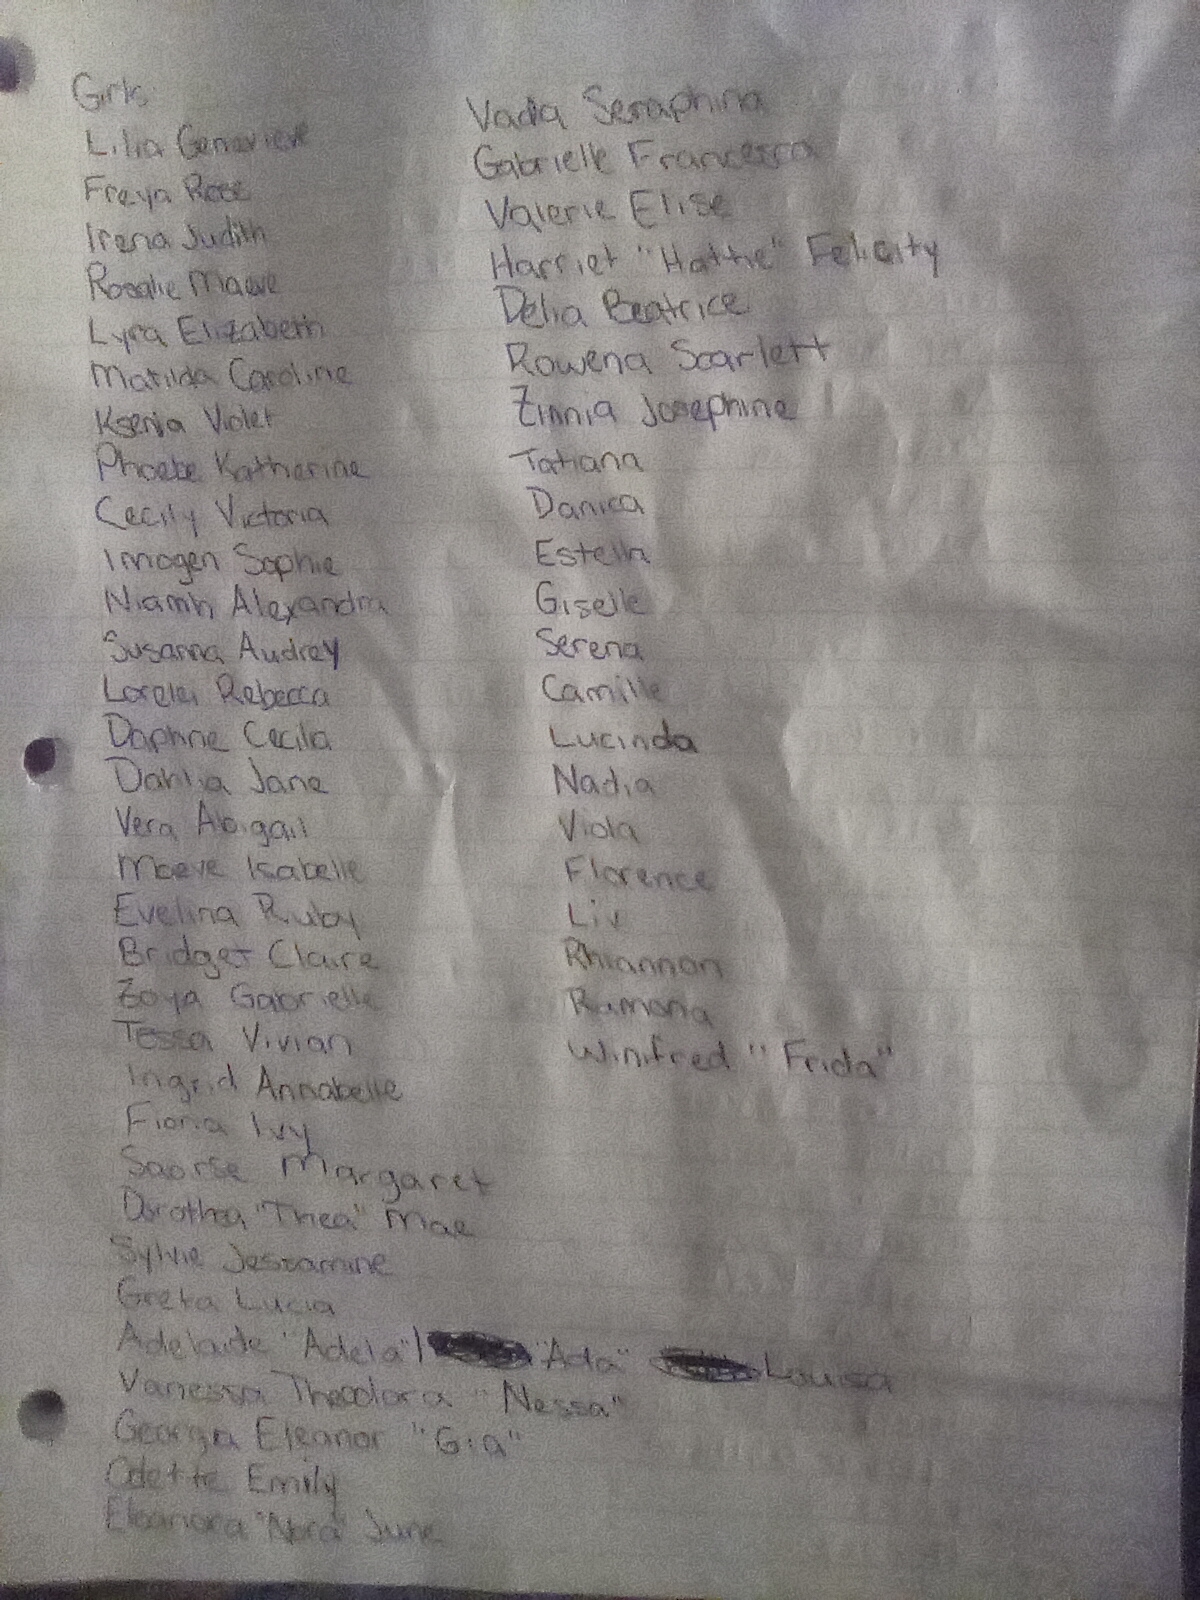 Girls
Lilia Genevieve
Freya Rose
Irena Judith
Rosalie Maeve
Lyra Elizabeth
Matilda Caroline
Ksenia Violet
Phoebe Katherine
Cecily Victoria
Imogen Sophie
Niamh Alexandra
Susanna Audrey
Lorelei Rebecca
Daphne Cecilia
Dahlia Jane
Vera Abigail
Maeve Isabelle
Evelina Ruby
Bridget Claire
Zoya Gabrielle
Tessa Vivian
Ingrid Annabelle
Fiona Ivy
Saorse Margaret
Dorothea "Thea" Mae
Sylvie Jessamine
Greta Lucia
Adelaide "Adela"/ "Ada" Louisa
Vanessa Theodora "Nessa"
Georgia Eleanor "Gia"
Odette Emily
Eleanora "Nora" June
Vada Seraphina
Gabrielle Francesca
Valerie Elise
Harriet "Hattie" Felicity
Delia Beatrice
Rowena Scarlett
Zinnia Josephine
Tatiana
Danica
Estella
Giselle
Serena
Camille
Lucinda
Nadia
Viola
Florence
Liv
Rhiannon
Ramona
Winifred "Frida"